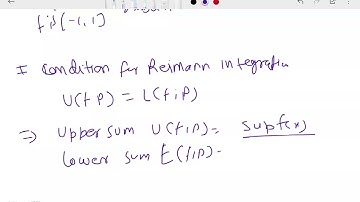 f is [-1, 1]
I condition for Reimann integratin
U(f P) = L(f, P)
⇒ Upper sum U(f, P) = Sup f(x)
lower sum L(f, P) -